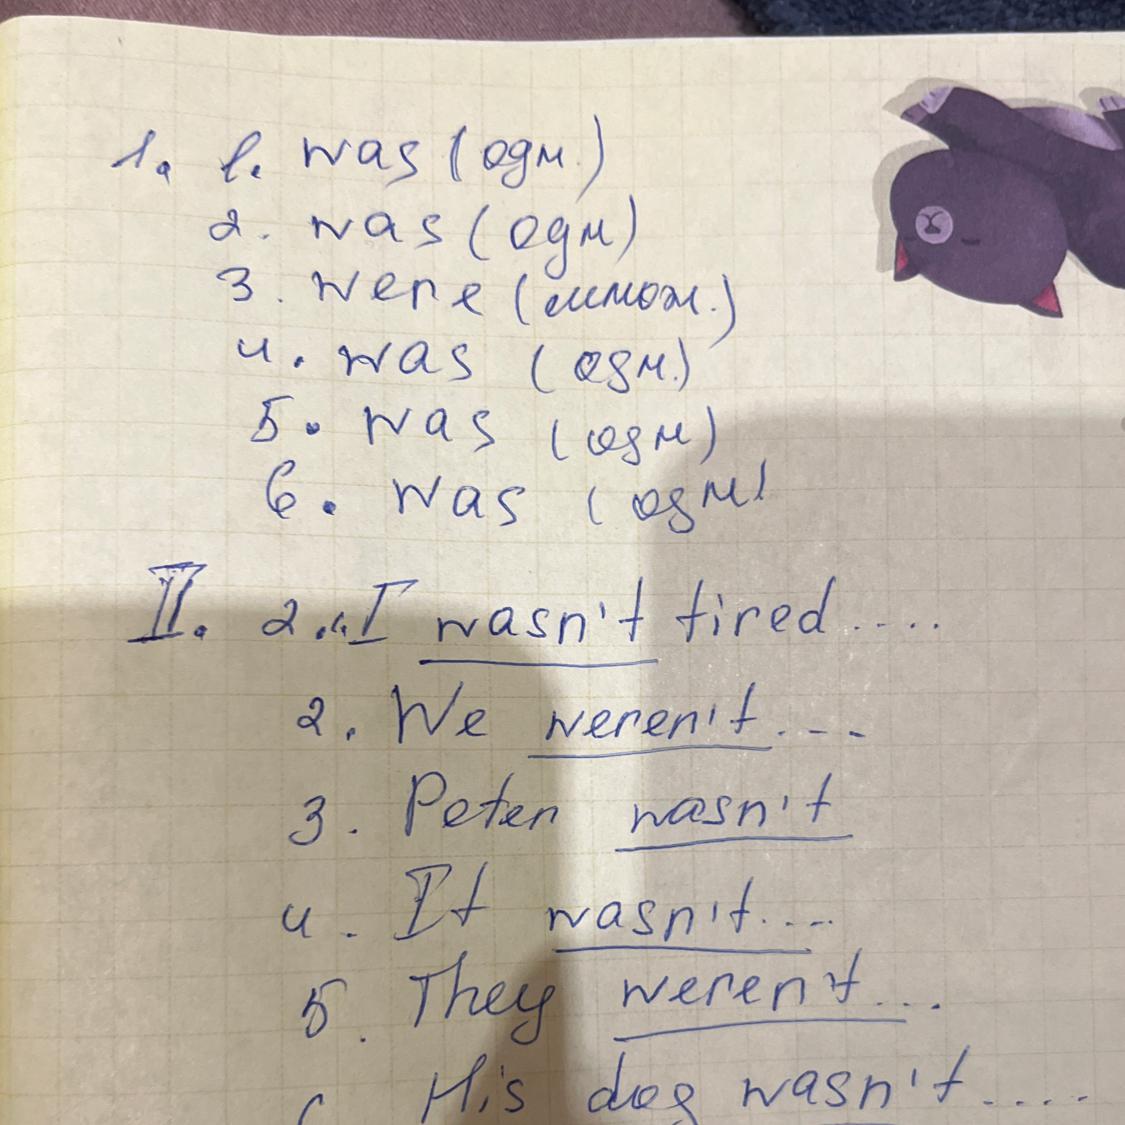 1. 1. was (одн.)
2. was (одн)
3. were (множ.)
4. was (одн.)
5. was (одн)
6. was (одн)
II. 2. I wasn't tired ....
2. We weren't ....
3. Peter wasn't
4. It wasn't....
5. They weren't...
His dog wasn't ....